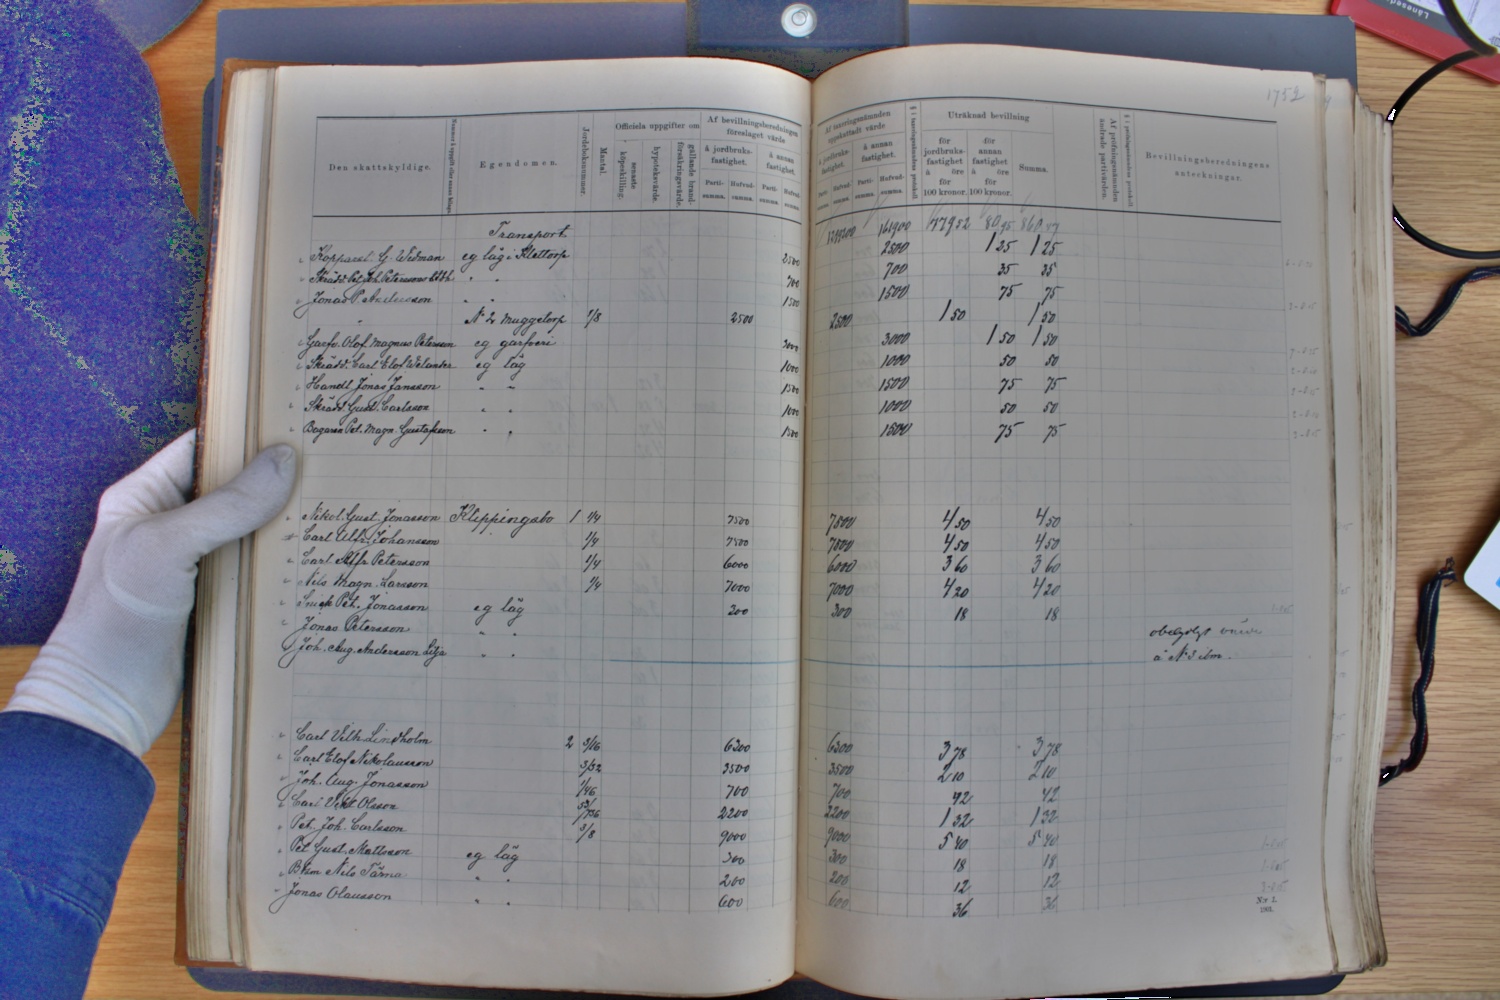 1752
Den skattskyldige.
Egendomen.
Jordeboksnummer.
Mantal.
Officiela uppgifter om
senaste köpeskilling.
hypoteksvärde.
gällande brandförsäkringsvärde.
Af bevillningsberedningen föreslaget värde
å jordbruksfastighet.
å annan fastighet.
Partisumma.
Hufvudsumma.
Partisumma.
Hufvudsumma.
Af taxeringsnämnden uppskattadt värde
å jordbruksfastighet.
å annan fastighet.
Uträknad bevillning
för jordbruksfastighet à öre för 100 kronor.
för annan fastighet à öre för 100 kronor.
Summa.
Af pröfningsnämnden ändrade partivärden.
Bevillningsberedningens anteckningar.
Transport 161900 779 52 80 95
Kopparsl. G. Widman eg läg i Klettorp 2500 2500 1 25 1 25
700 700 35 35
Jonas P. Andersson " " 1500 1500 75 75
" N 2 Muggetorp 1/8 2500 2500 1 50 1 50
Garfv. Olof Magnus Peterson eg garfveri 3000 3000 1 50 1 50
Skrädd. Carl Elof Welander eg läg 1000 1000 50 50
Handl Jonas Jansson " " 1500 1500 75 75
Skrädd Gust. Carlsson " " 1000 1000 50 50
Bagaren Pet. Magn. Gustafsson " " 1500 1500 75 75
Nikol. Gust. Jonasson Klippingsbo 1 1/4 7500 7500 4 50 4 50
Carl Alfr. Johansson 1/4 7500 7500 4 50 4 50
Carl Alfr. Petersson 1/4 6000 6000 3 60 3 60
Nils Magn. Larsson 1/4 7000 7000 4 20 4 20
Snick Pet. Jonasson eg läg 300 300 18 18
Jonas Petersson " "
Joh. Aug. Andersson Lilja " " å N 3 ibm.
Carl Vilh Lindholm 2 3/16 6300 6300 3 78 3 78
Carl Elof Nikolausson 3/32 3500 3500 2 10 2 10
Joh. Aug. Jonasson 700 700 42 42
Carl Vikt Olsson 2200 2200 1 32 1 32
Pet. Joh. Carlsson 3/8 9000 9000 5 40 5 40
Pet Gust. Mattsson eg läg 300 300 18 18
Nils Tärna " " 200 200 12 12
Jonas Olausson " " 600 600 36 36
N:r 1.
1901.